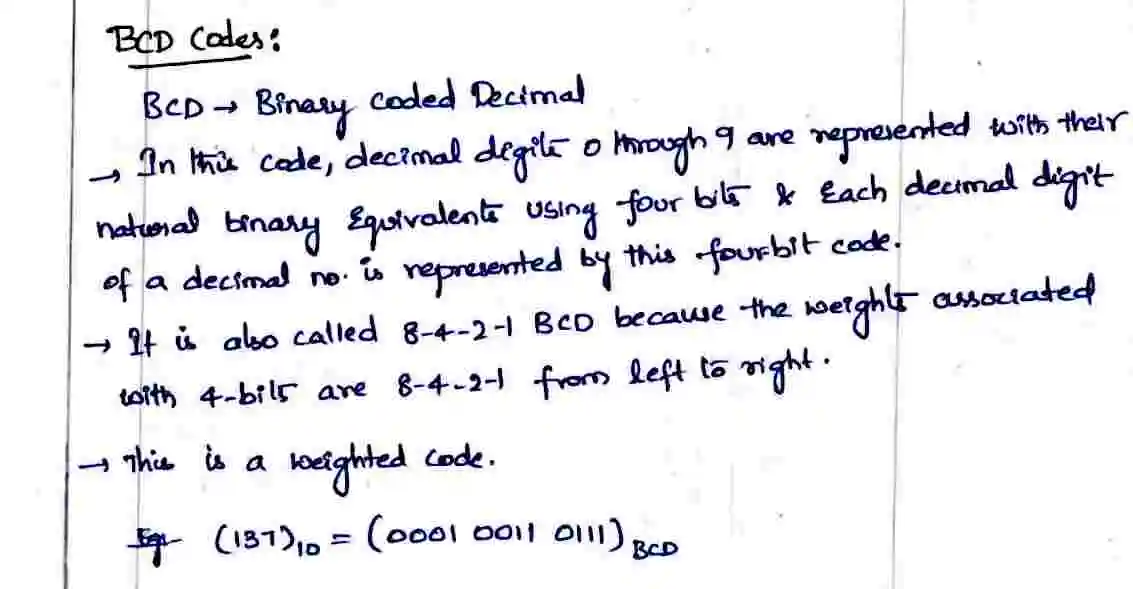 BCD Codes:
BCD → Binary Coded Decimal
→ In this code, decimal digits 0 through 9 are represented with their
natural binary Equivalents using four bits & Each decimal digit
of a decimal no. is represented by this four bit code.
→ It is also called 8-4-2-1 BCD because the weights associated
with 4-bits are 8-4-2-1 from left to right.
→ This is a weighted code.
Eg:- (137)₁₀ = (0001 0011 0111)BCD